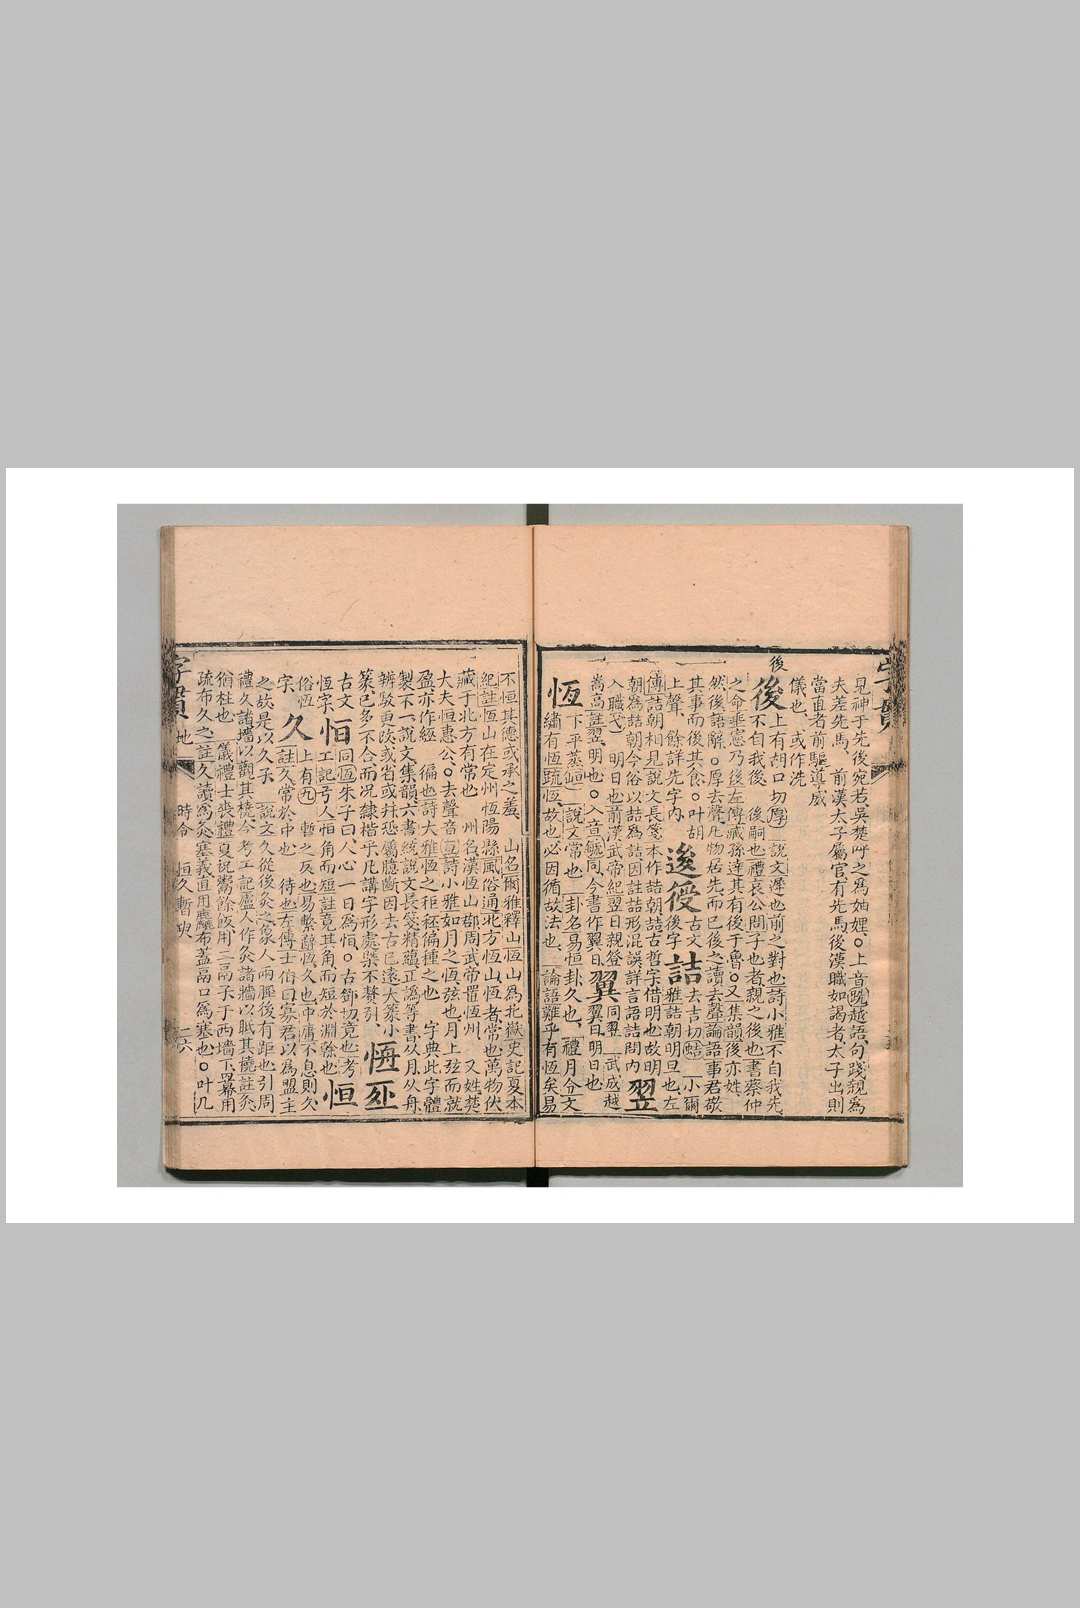 見神于先後宛若吳楚呼之爲妯娌○上音
越語句踐親爲
夫差先馬 前漢太子屬官有先馬後漢職如謁者太子出則
當直者前驅導威
儀也 或作洗
後
後 上有胡口切厚 說文遲也前之對也詩小雅不自我先
不自我後 後嗣也禮哀公問子也者親之後也書蔡仲
之命垂憲乃後左傳臧孫達其有後于魯○又集韻後亦姓
然後語辭○厚去聲凡物居先而已後之讀去聲論語事君敬
其事而後其食○叶胡
上聲 餘詳先字內 後 古文後字 詰 去吉切 小爾雅詰朝明旦也左
傳詰朝相見說文長箋本作詰朝詰古哲字借明也故明
朝爲詰朝今俗以詰爲詰因註詰形混誤詳言語詰問內 翌
入職弋 明日也前漢武帝紀翌日親登
嵩高註翌明也○入音毓同今書作翼日 翼 同翌 武成越翼日明日也
恆 下平蒸 說文常也 卦名易恆卦久也 禮月令文
繡有恆疏恆故也必因循故法也 論語難乎有恆矣易
不恆其德或承之羞 山名爾雅釋山恆山爲北嶽史記夏本
紀註恆山在定州恆陽縣風俗通北方恆山恆者常也萬物伏
藏于北方有常也 州名漢恆山郡周武帝置恆州 又姓楚
大夫恆惠公○去聲音亙詩小雅如月之恆弦也月上弦而就
盈亦作縆 徧也詩大雅恆之秬秠徧種之也 字典此字體
製不一說文集韻六書統說文長箋精蘊正譌等書从月从舟
辨駁更改或省或幷悉屬臆斷因去古已遠大篆小
篆已多不合而況隸楷乎凡講字形處槩不贅引
古文 恒 同恆朱子曰人心一日爲恒○古鄧切竟也考
工記弓人恒角而短註竟其角而短於淵幹也 恒 俗恆字
久 上有九 暫之反也易繫辭恆久也中庸不息則久
註久常於中也 待也左傳士伯曰寡君以爲盟主
之故是以久子 說文久從後灸之象人兩脛後有距也引周
禮久諸墻以觀其橈今考工記廬人作灸諸牆以眡其橈註灸
猶柱也 儀禮士喪禮夏祝鬻餘飯用二鬲于西墻下冪用
疏布久之註久讀爲灸塞義直用麤布蓋鬲口爲塞也○叶几
字貫 地 時令 恒久暫 二六